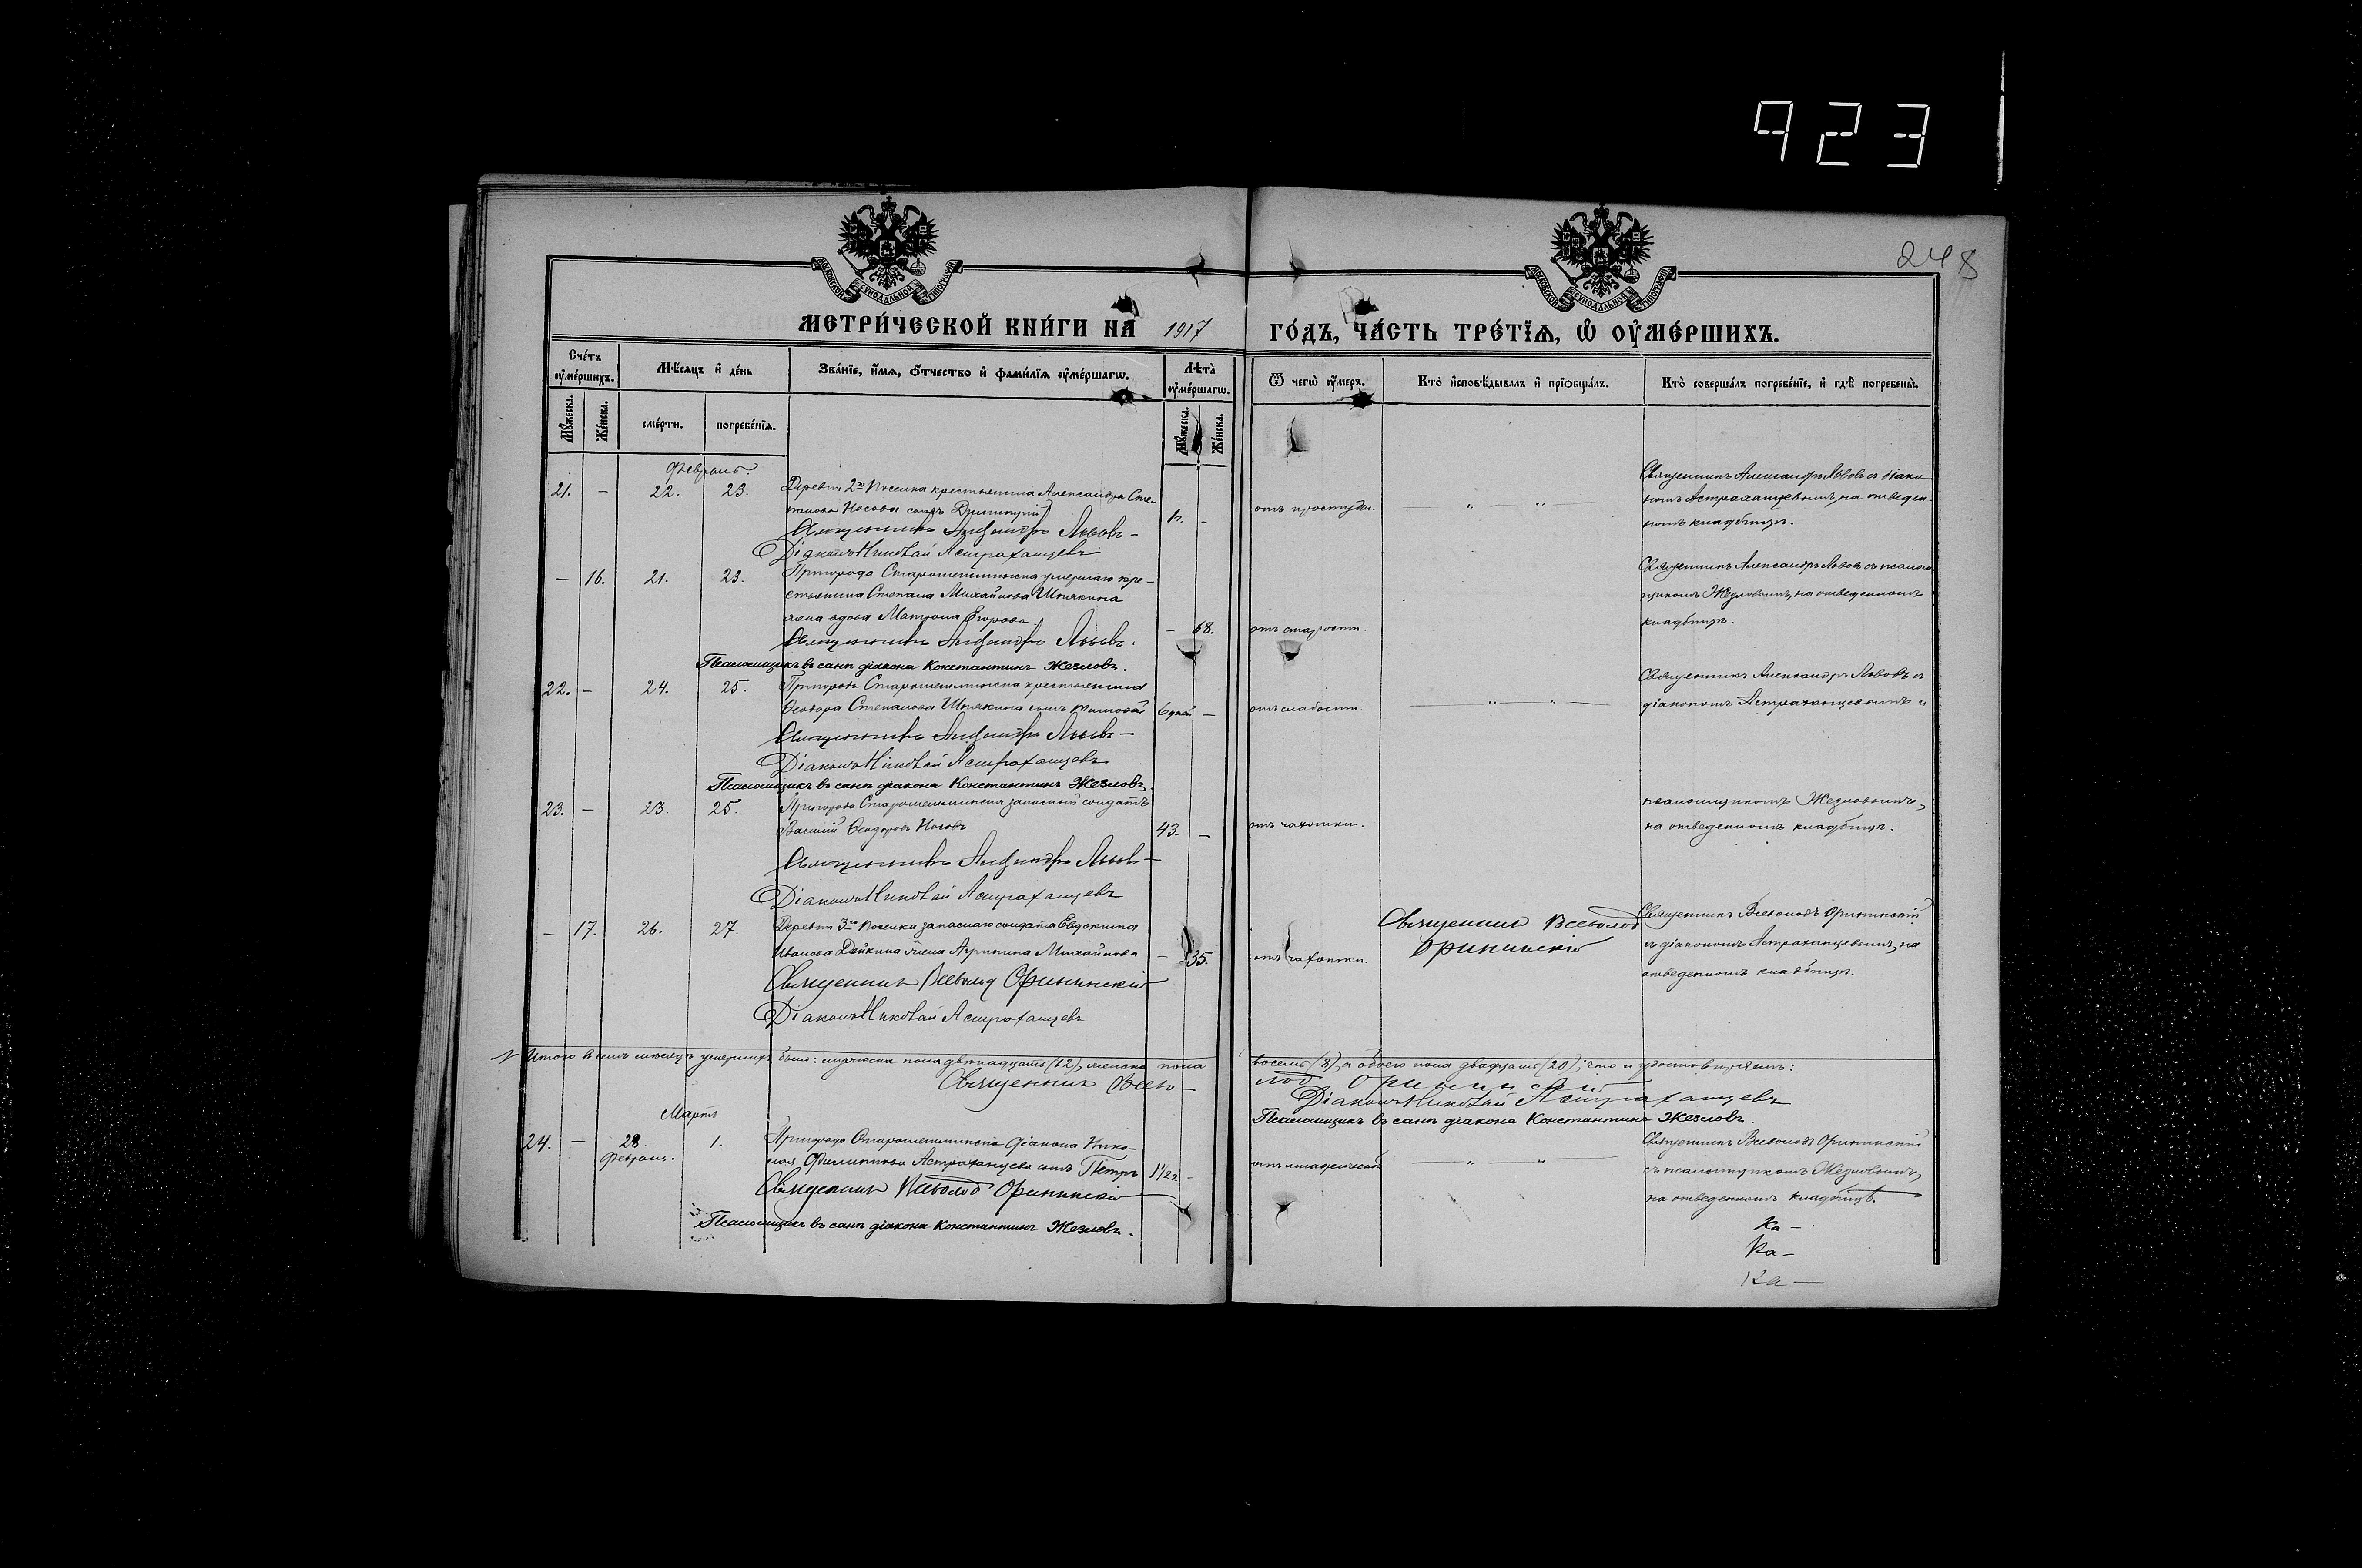 923
248
МОСКОВСКОЙ СУНОДАЛЬНОЙ ТИПОГРАФІИ
МОСКОВСКОЙ СУНОДАЛЬНОЙ ТИПОГРАФІИ
МЕТРИ́ЧЕСКОЙ КНИ́ГИ НА 1917 ГО́ДЪ, ЧА́СТЬ ТРЕ́ТЇѦ, Ѡ ОУ҆МЕ́РШИХЪ.
Сче́тъ оу҆ме́ршихъ.
Мѣсяцъ и де́нь
Зва́нїе, и҆́мѧ, ѻ҆́тчество и҆ фами́лїѧ оу҆ме́ршагѡ.
Лѣ́та оу҆ме́ршагѡ.
Ѿ чегѡ̀ оу҆́меръ.
Кто̀ и҆сповѣ́дывалъ и҆ прїѡбща́лъ.
Кто̀ соверша́лъ погребе́нїе, и҆ гдѣ̀ погребены̀.
Мꙋ́жеска.
Же́нска.
сме́рти.
погребе́нїѧ.
Мꙋ́жеска.
Же́нска.
Февраль.
21. – 22. 23. Деревни 2го Поселка крестьянина Александра Сте-
панова Носова сынъ Димитрій
Священникъ Александръ Львовъ
Діаконъ Николай Астраханцевъ
отъ простуды.
Священникъ Александръ Львовъ съ діако-
номъ Астраханцевымъ, на отведен-
номъ кладбищѣ.
– 16. 21. 23. Пригорода Старошешминска умершаго кре-
стьянина Степана Михайлова Шпякина
жена вдова Матрона Егорова
– 68.
Священникъ Александръ Львовъ.
Псаломщикъ въ санѣ діакона Константинъ Жезловъ.
отъ старости.
Священникъ Александръ Львовъ съ псалом-
щикомъ Жезловымъ, на отведенномъ
кладбищѣ.
22. – 24. 25. Пригорода Старошешминска крестьянина
Ѳеодора Степанова Шпякина сынъ 6 дней –
Священникъ Александръ Львовъ
Діаконъ Николай Астраханцевъ
Псаломщикъ въ санѣ діакона Константинъ Жезловъ.
отъ слабости.
Священникъ Александръ Львовъ съ
діакономъ Астраханцевымъ и
псаломщикомъ Жезловымъ,
на отведенномъ кладбищѣ.
23. – 23. 25. Пригорода Старошешминска запасный солдатъ
Василій Ѳеодоровъ Носовъ
43. –
Священникъ Александръ Львовъ
Діаконъ Николай Астраханцевъ
отъ чахотки.
– 17. 26. 27. Деревни 3го Поселка запаснаго солдата Евдокима
Иванова Дейкина жена Агрипина Михайлова
– 35.
Священникъ Всеволод Оринінскій
Діаконъ Николай Астраханцевъ
отъ чахотки.
Священник Всеволод
Орининскій
Священникъ Всеволодъ Орининскій
съ діакономъ Астраханцевымъ, на
отведенномъ кладбищѣ.
Итого въ семъ мѣсяцѣ умершихъ было: мужеска пола двѣнадцать (12), женска пола восемь (8), а обоего пола двадцать (20); что и удостовѣряемъ:
Священник Всево-лод Орининскій
Діаконъ Николай Астраханцевъ
Псаломщикъ въ санѣ діакона Константинъ Жезловъ.
Мартъ
24. – 28. Февраля. 1. Пригорода Старошешминска діакона Нико-
лая Филиппова Астраханцева сынъ Петръ 1½ –
Священник Всеволод Орининскій
Псаломщикъ въ санѣ діакона Константинъ Жезловъ.
Священникъ Всеволодъ Орининскій
съ псаломщикомъ Жезловымъ,
на отведенномъ кладбищѣ.
Ка –
Ка –
Ка –